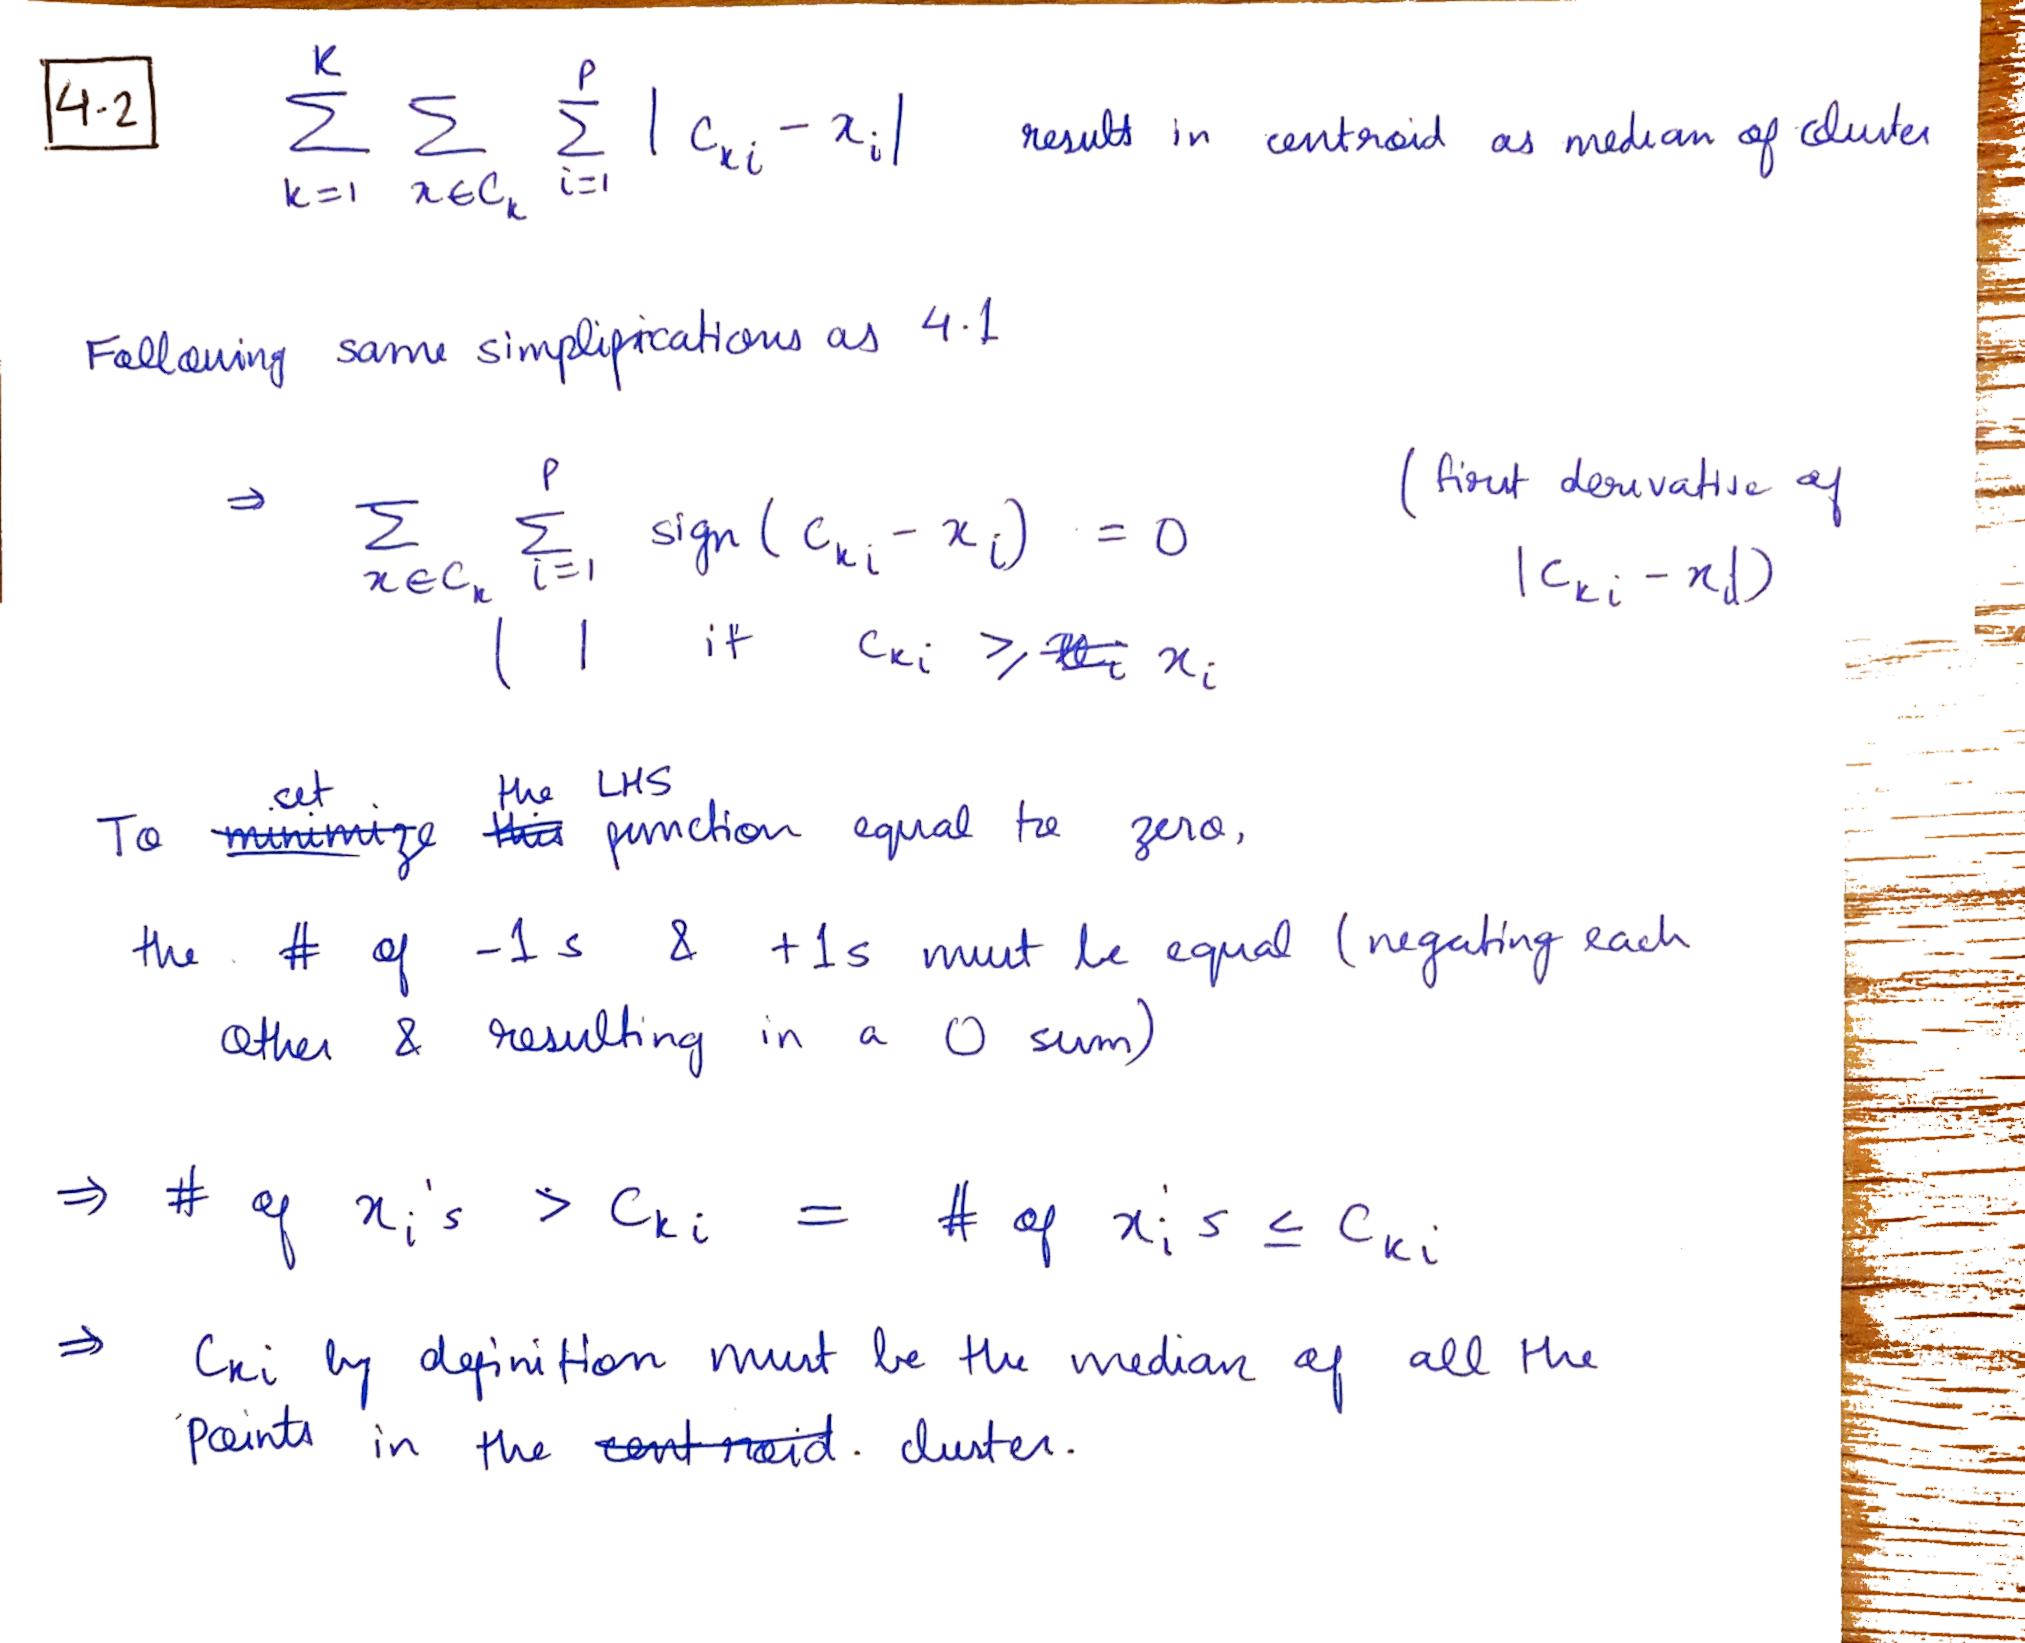 4.2 K∑k=1 ∑x∈Ck P∑i=1 |Cki - xi| results in centroid as median of cluster
Following same simplifications as 4.1
⇒ ∑x∈Ck P∑i=1 sign(Cki - xi) = 0 (first derivative of
|Cki - xi|)
( 1 if Cki ≥ xi
set the LHS
To minimize this function equal to zero,
the # of -1s & +1s must be equal (negating each
other & resulting in a 0 sum)
⇒ # of xi's > Cki = # of xi's ≤ Cki
⇒ Cki by definition must be the median of all the
points in the centroid. cluster.